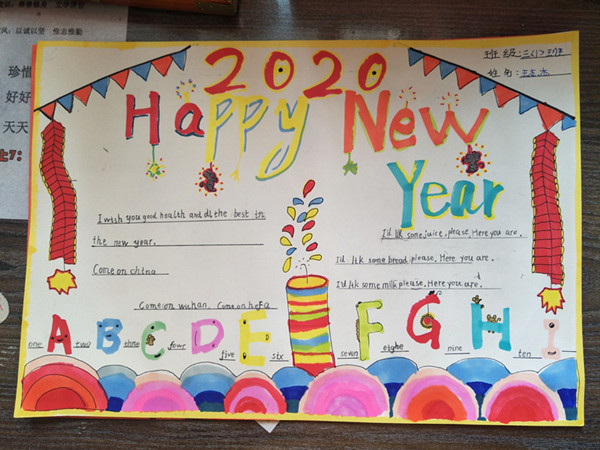 珍惜
好好
天天
班级:三(1)班
姓名:
2020
Happy New
Year
I wish you good health and all the best in
the new year.
Come on china
Come on wuhan. Come on
I'd lik some juice, please. Here you are.
I'd lik some bread please. Here you are.
I'd lik some milk please. Here you are.
A B C D E F G H I
one two three four five six seven eighe nine ten